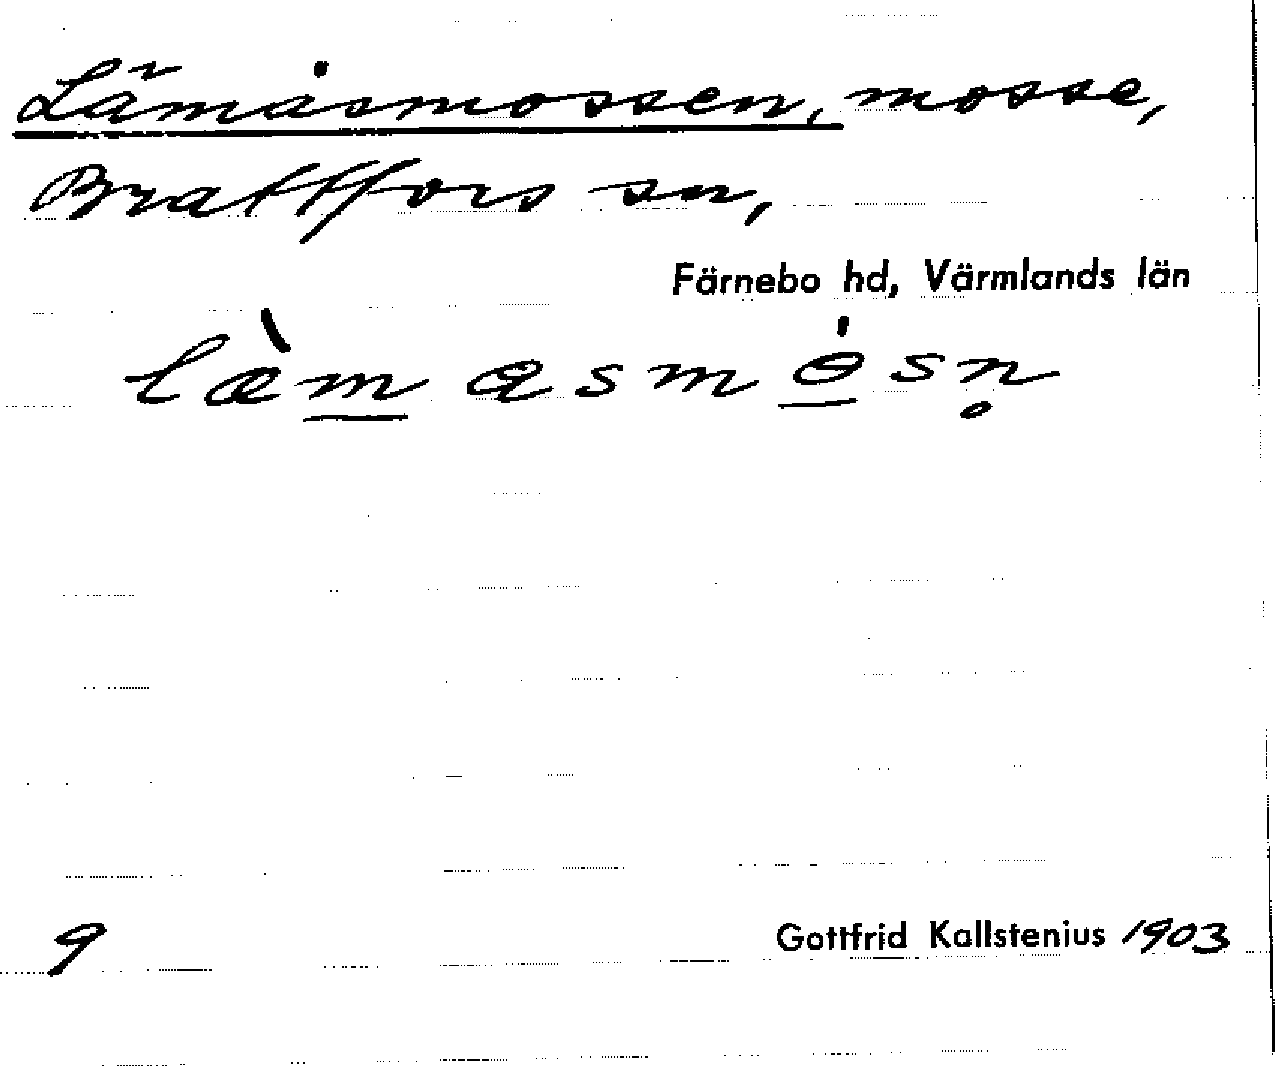 Lämåsmossen, mosse,
Brattfors sn,
Färnebo hd, Värmlands län
læ̀m asmósn̥
9
Gottfrid Kallstenius 1903